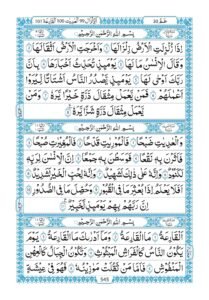 عم 30
الزلزال 99 العٰديٰت 100 القارعة 101
بِسْمِ اللهِ الرَّحْمٰنِ الرَّحِيْمِ
اِذَا زُلْزِلَتِ الْاَرْضُ زِلْزَالَهَا وَاَخْرَجَتِ الْاَرْضُ اَثْقَالَهَا
وَقَالَ الْاِنْسَانُ مَا لَهَا يَوْمَئِذٍ تُحَدِّثُ اَخْبَارَهَا بِاَنَّ
رَبَّكَ اَوْحٰى لَهَا يَوْمَئِذٍ يَّصْدُرُ النَّاسُ اَشْتَاتًا لِّيُرَوْا
اَعْمَالَهُمْ فَمَنْ يَّعْمَلْ مِثْقَالَ ذَرَّةٍ خَيْرًا يَّرَهٗ وَمَنْ
يَّعْمَلْ مِثْقَالَ ذَرَّةٍ شَرًّا يَّرَهٗ
بِسْمِ اللهِ الرَّحْمٰنِ الرَّحِيْمِ
وَالْعٰدِيٰتِ ضَبْحًا فَالْمُوْرِيٰتِ قَدْحًا فَالْمُغِيْرٰتِ صُبْحًا
فَاَثَرْنَ بِهٖ نَقْعًا فَوَسَطْنَ بِهٖ جَمْعًا اِنَّ الْاِنْسَانَ لِرَبِّهٖ
لَكَنُوْدٌ وَاِنَّهٗ عَلٰى ذٰلِكَ لَشَهِيْدٌ وَاِنَّهٗ لِحُبِّ الْخَيْرِ لَشَدِيْدٌ
اَفَلَا يَعْلَمُ اِذَا بُعْثِرَ مَا فِي الْقُبُوْرِ وَحُصِّلَ مَا فِي الصُّدُوْرِ
اِنَّ رَبَّهُمْ بِهِمْ يَوْمَئِذٍ لَّخَبِيْرٌ
بِسْمِ اللهِ الرَّحْمٰنِ الرَّحِيْمِ
اَلْقَارِعَةُ مَا الْقَارِعَةُ وَمَاۤ اَدْرٰىكَ مَا الْقَارِعَةُ يَوْمَ
يَكُوْنُ النَّاسُ كَالْفَرَاشِ الْمَبْثُوْثِ وَتَكُوْنُ الْجِبَالُ كَالْعِهْنِ
الْمَنْفُوْشِ فَاَمَّا مَنْ ثَقُلَتْ مَوَازِيْنُهٗ فَهُوَ فِيْ عِيْشَةٍ
545